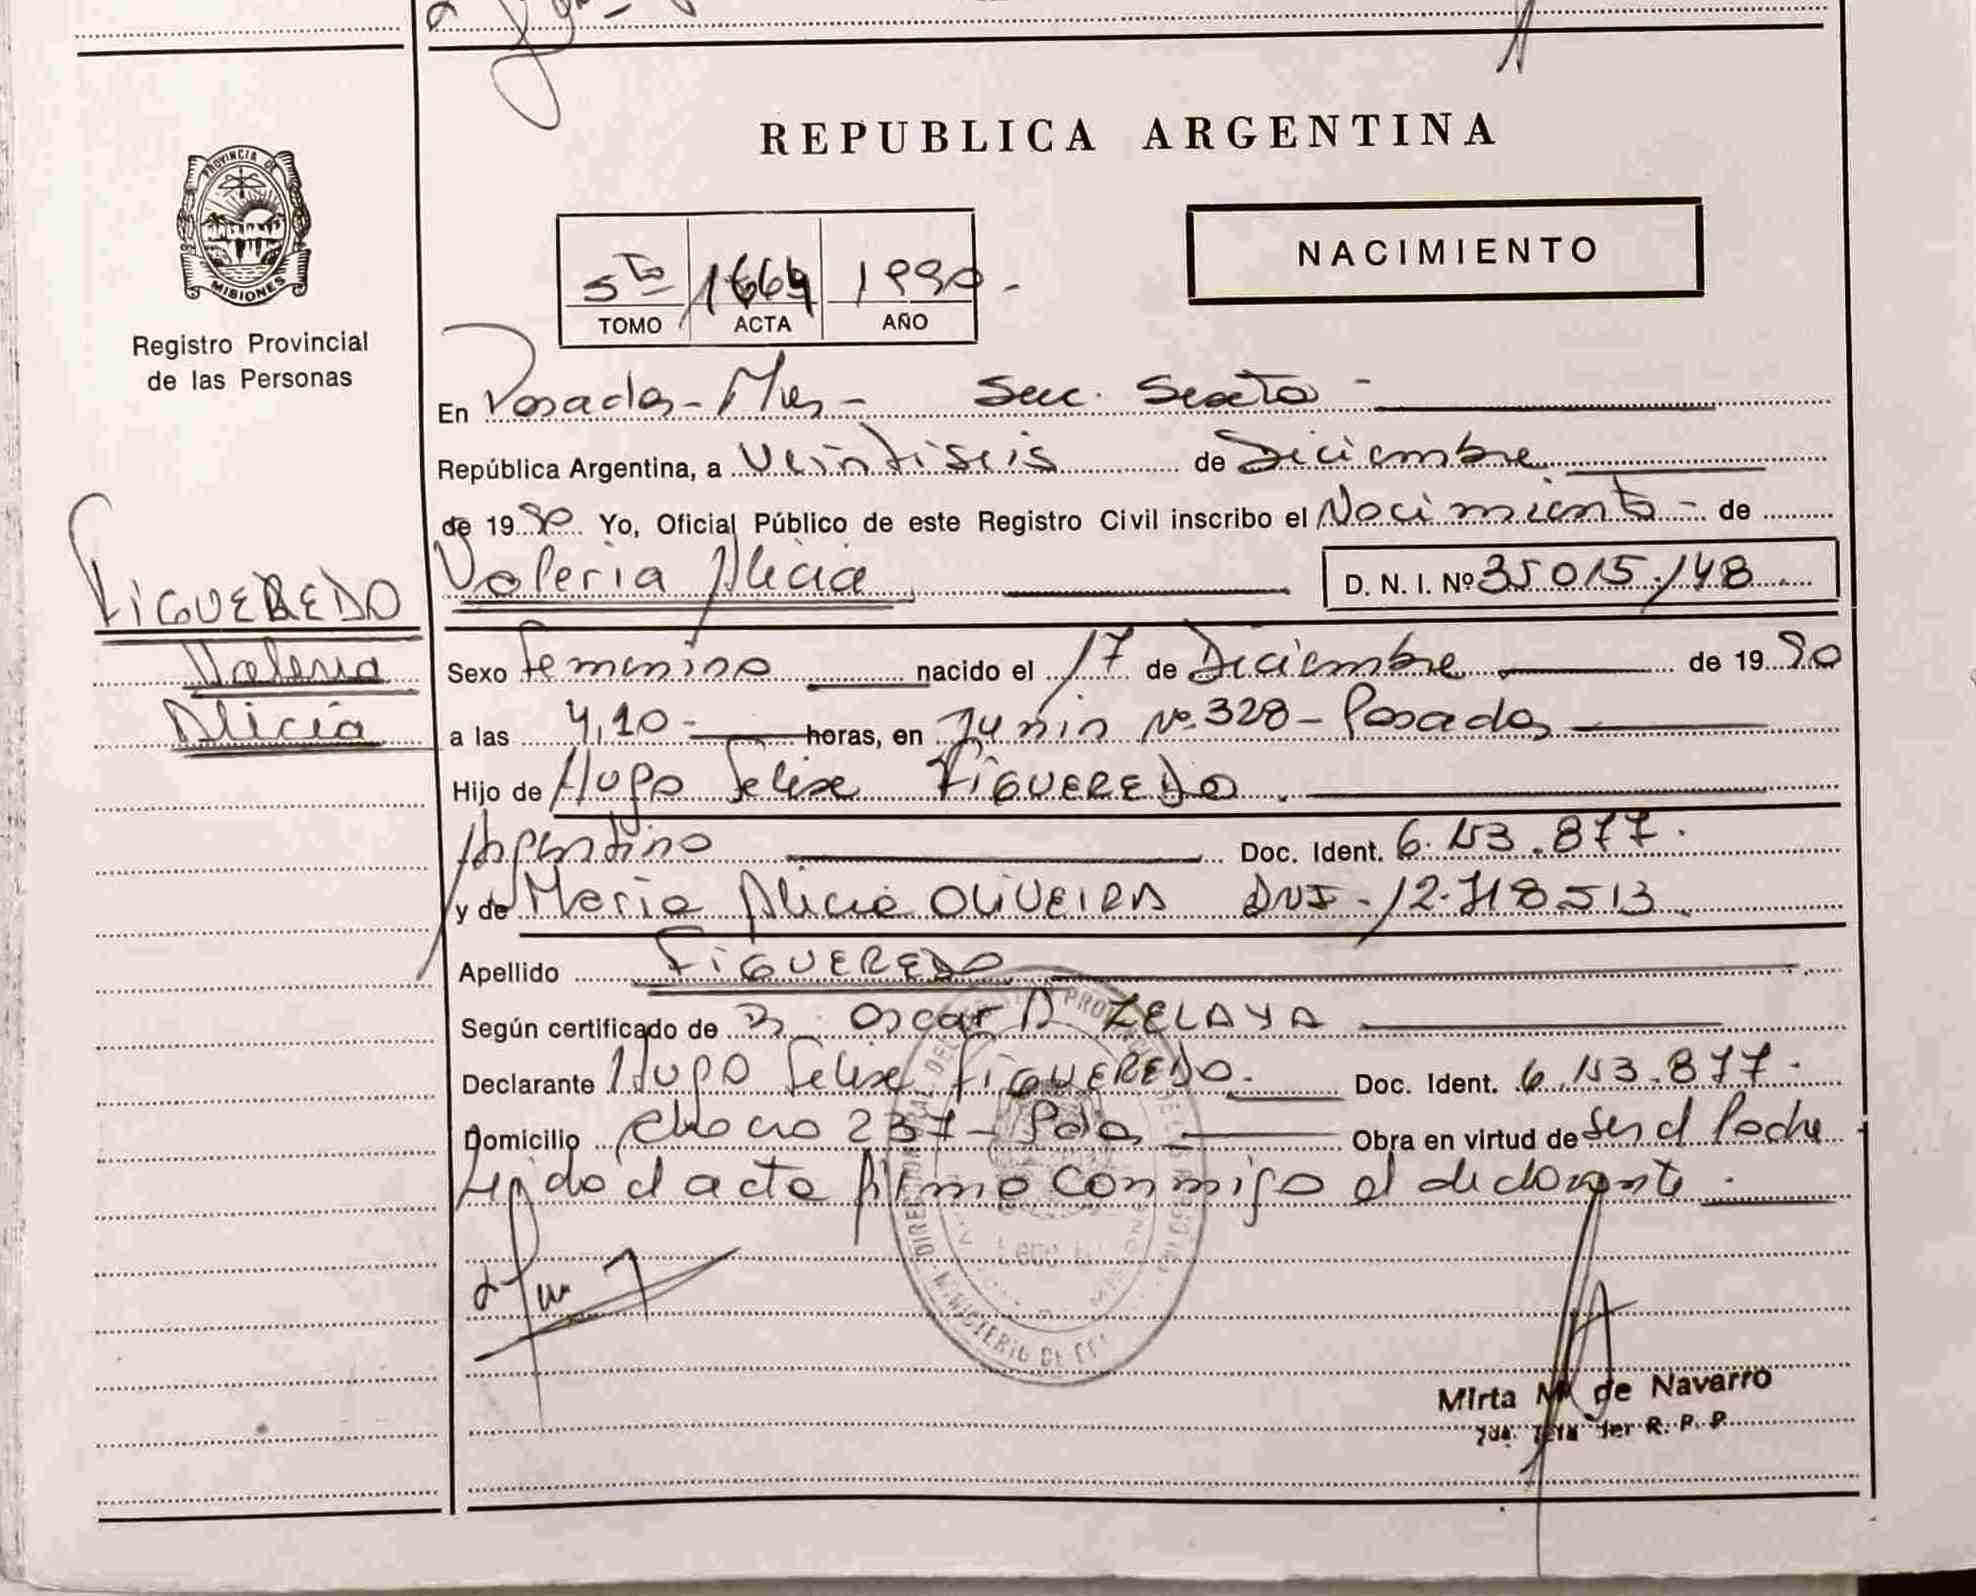 REPUBLICA ARGENTINA
PROVINCIA DE
MISIONES
Registro Provincial
de las Personas
NACIMIENTO
5to 1664 1990.-
TOMO ACTA AÑO
En Posadas - Mnes - Secc. Sexta -
República Argentina, a Veintiseis de Diciembre
de 1990 Yo, Oficial Público de este Registro Civil inscribo el Nacimiento - de
FIGUEREDO
Valeria
Alicia
Valeria Alicia D. N. I. Nº 35.015.148
Sexo Femenino nacido el 17 de Diciembre de 1990
a las 4,10 - horas, en Junin Nº 328 - Posadas
Hijo de Hugo Felix FIGUEREDO
Argentino Doc. Ident. 6. 153.877.
y de Maria Alicia OLIVEIRA DNI - 12.718.513
Apellido FIGUEREDO
Según certificado de Oscar A ZELAYA
Declarante Hugo Felix FIGUEREDO. Doc. Ident. 6.153.877.
Domicilio Chaco 237 - Pdas Obra en virtud de Ser el Padre
Leido el acta firma conmigo el declarante.
Mirta M. de Navarro
R. P. P.